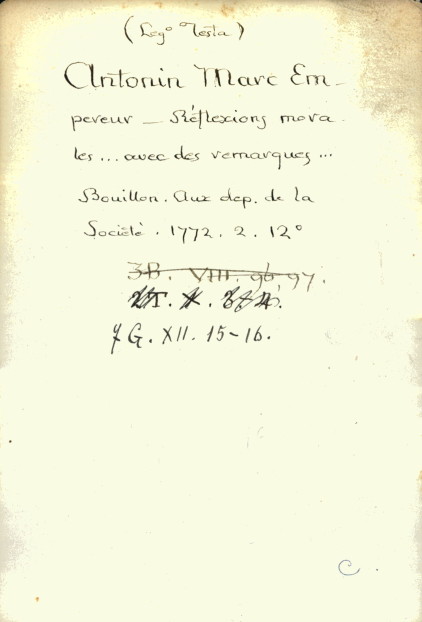 (Leg° Testa)
Antonin Marc Em-
pereur _ Réflexions mora-
les ... avec des remarques ...
Bouillon. Aux dep. de la
Société. 1772. 2. 12°
3B. VIII. 96, 97.
7 G. XII. 15-16.
C.